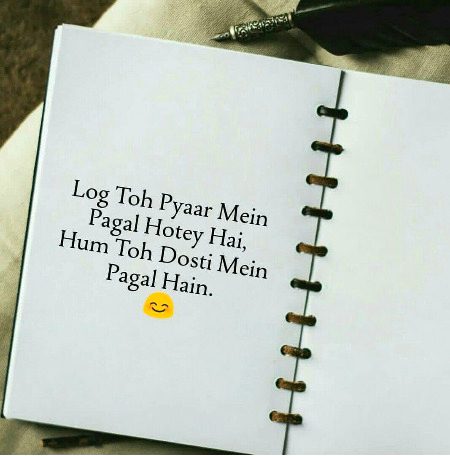 Log Toh Pyaar Mein
Pagal Hotey Hai,
Hum Toh Dosti Mein
Pagal Hain.
😊